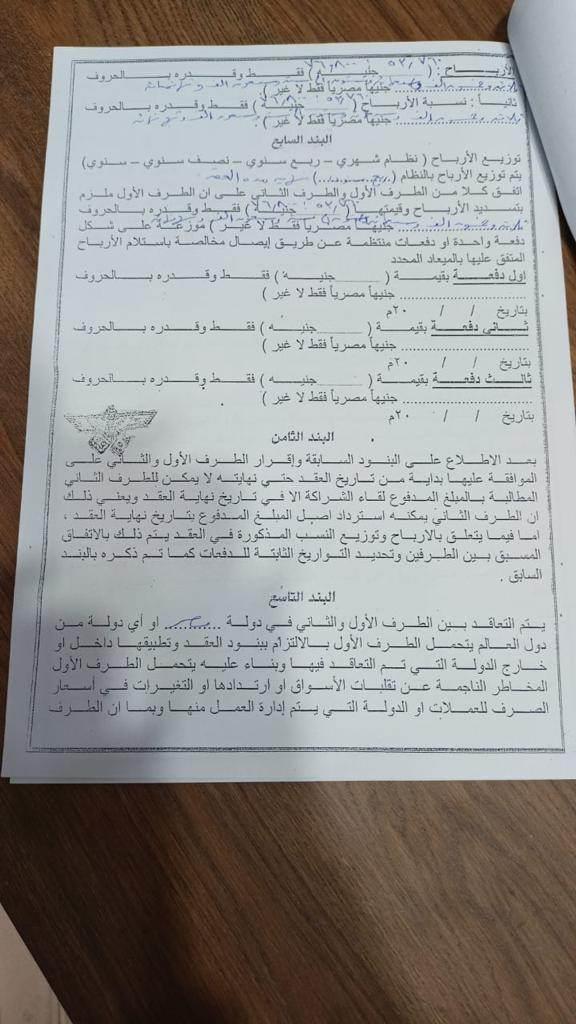 الأرباح : ( جنيه ) فقط وقدره بالحروف
جنيهاً مصرياً فقط لا غير )
ثانياً : نسبة الأرباح ( جنيه ) فقط وقدره بالحروف
جنيهاً مصرياً فقط لا غير ) .
البند السابع
توزيع الأرباح ( نظام شهري – ربع سنوي – نصف سنوي – سنوي )
يتم توزيع الأرباح بالنظام ( )
اتفق كلا من الطرف الأول والطرف الثاني على ان الطرف الأول ملزم
بتسديد الأرباح وقيمتها ( جنيه ) فقط وقدره بالحروف
جنيهاً مصرياً فقط لا غير ) موزعة على شكل
دفعة واحدة او دفعات منتظمة عن طريق إيصال مخالصة باستلام الأرباح
المتفق عليها بالميعاد المحدد
اول دفعة بقيمة ( ______ جنيه ) فقط وقدره بالحروف
................................ جنيهاً مصرياً فقط لا غير )
بتاريخ / / ٢٠م
ثاني دفعة بقيمة ( ______ جنيه ) فقط وقدره بالحروف
................................ جنيهاً مصرياً فقط لا غير )
بتاريخ / / ٢٠م
ثالث دفعة بقيمة ( ______ جنيه ) فقط وقدره بالحروف
................................ جنيهاً مصرياً فقط لا غير )
بتاريخ / / ٢٠م
البند الثامن
بعد الاطلاع على البنود السابقة وإقرار الطرف الأول والثاني على
الموافقة عليها بداية من تاريخ العقد حتي نهايته لا يمكن للطرف الثاني
المطالبة بالمبلغ المدفوع لقاء الشراكة الا في تاريخ نهاية العقد ويعني ذلك
ان الطرف الثاني يمكنه استرداد اصل المبلغ المدفوع بتاريخ نهاية العقد ،
اما فيما يتعلق بالارباح وتوزيع النسب المذكورة في العقد يتم ذلك بالاتفاق
المسبق بين الطرفين وتحديد التواريخ الثابتة للدفعات كما تم ذكره بالبند
السابق .
البند التاسع
يتم التعاقد بين الطرف الأول والثاني في دولة مصر او أي دولة من
دول العالم يتحمل الطرف الأول بالالتزام ببنود العقد وتطبيقها داخل او
خارج الدولة التي تم التعاقد فيها وبناء عليه يتحمل الطرف الأول
المخاطر الناجمة عن تقلبات الأسواق او ارتدادها او التغيرات في أسعار
الصرف للعملات او الدولة التي يتم إدارة العمل منها وبما ان الطرف